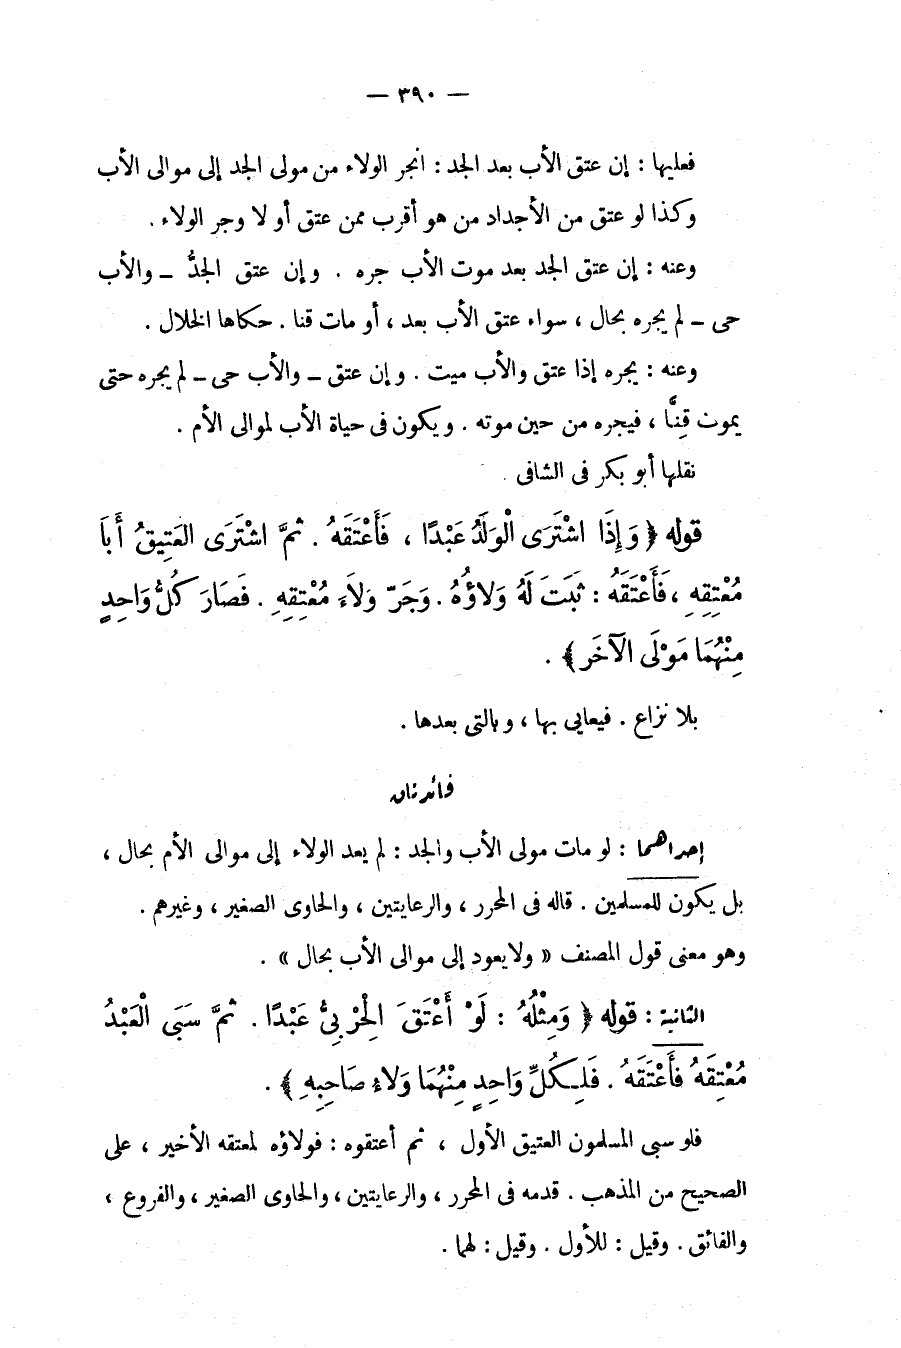 — ٣٩٠ —
فعليها : إن عتق الأب بعد الجد : انجر الولاء من مولى الجد إلى موالى الأب
وكذا لو عتق من الأجداد من هو أقرب ممن عتق أو لا وجر الولاء .
وعنه : إن عتق الجد بعد موت الأب جره . وإن عتق الجدُّ ــ والأب
حى ــ لم يجره بحال ، سواء عتق الأب بعد ، أو مات قنا . حكاها الخلال .
وعنه : يجره إذا عتق والأب ميت . وإن عتق ــ والأب حى ــ لم يجره حتى
يموت قِنًّا ، فيجره من حين موته . ويكون فى حياة الأب لموالى الأم .
نقلها أبو بكر فى الشافى
قوله ﴿ وَإِذَا اشْتَرَى الْوَلَدُ عَبْدًا ، فَأَعْتَقَهُ . ثمَّ اشْتَرَى العَتِيقُ أَبَا
مُعْتِقِهِ ، فَأَعْتَقَهُ : ثَبَتَ لَهُ وَلاؤُهُ . وَجَرّ وَلاَءَ مُعْتِقِهِ . فَصَارَ كُلُّ وَاحِدٍ
مِنْهُمَا مَوْلَى الآخَر ﴾ .
بلا نزاع . فيعايى بها ، وبالتى بعدها .
فائدتان
إحداهما : لو مات مولى الأب والجد : لم يعد الولاء إلى موالى الأم بحال ،
بل يكون للمسلمين . قاله فى المحرر ، والرعايتين ، والحاوى الصغير ، وغيرهم .
وهو معنى قول المصنف « ولا يعود إلى موالى الأب بحال » .
الثانية : قوله ﴿ وَمِثْلُهُ : لَوْ أَعْتَقَ الحِرْبىُّ عَبْدًا . ثمَّ سَبَى الْعَبْدُ
مُعْتِقَهُ فأَعْتَقَهُ . فَلِكُلِّ وَاحِدٍ مِنْهُمَا وَلاءُ صَاحِبِهِ ﴾ .
فلو سبى المسلمون العتيق الأول ، ثم أعتقوه : فولاؤه لمعتقه الأخير ، على
الصحيح من المذهب . قدمه فى المحرر ، والرعايتين ، والحاوى الصغير ، والفروع ،
والفائق . وقيل : للأول . وقيل : لهما .